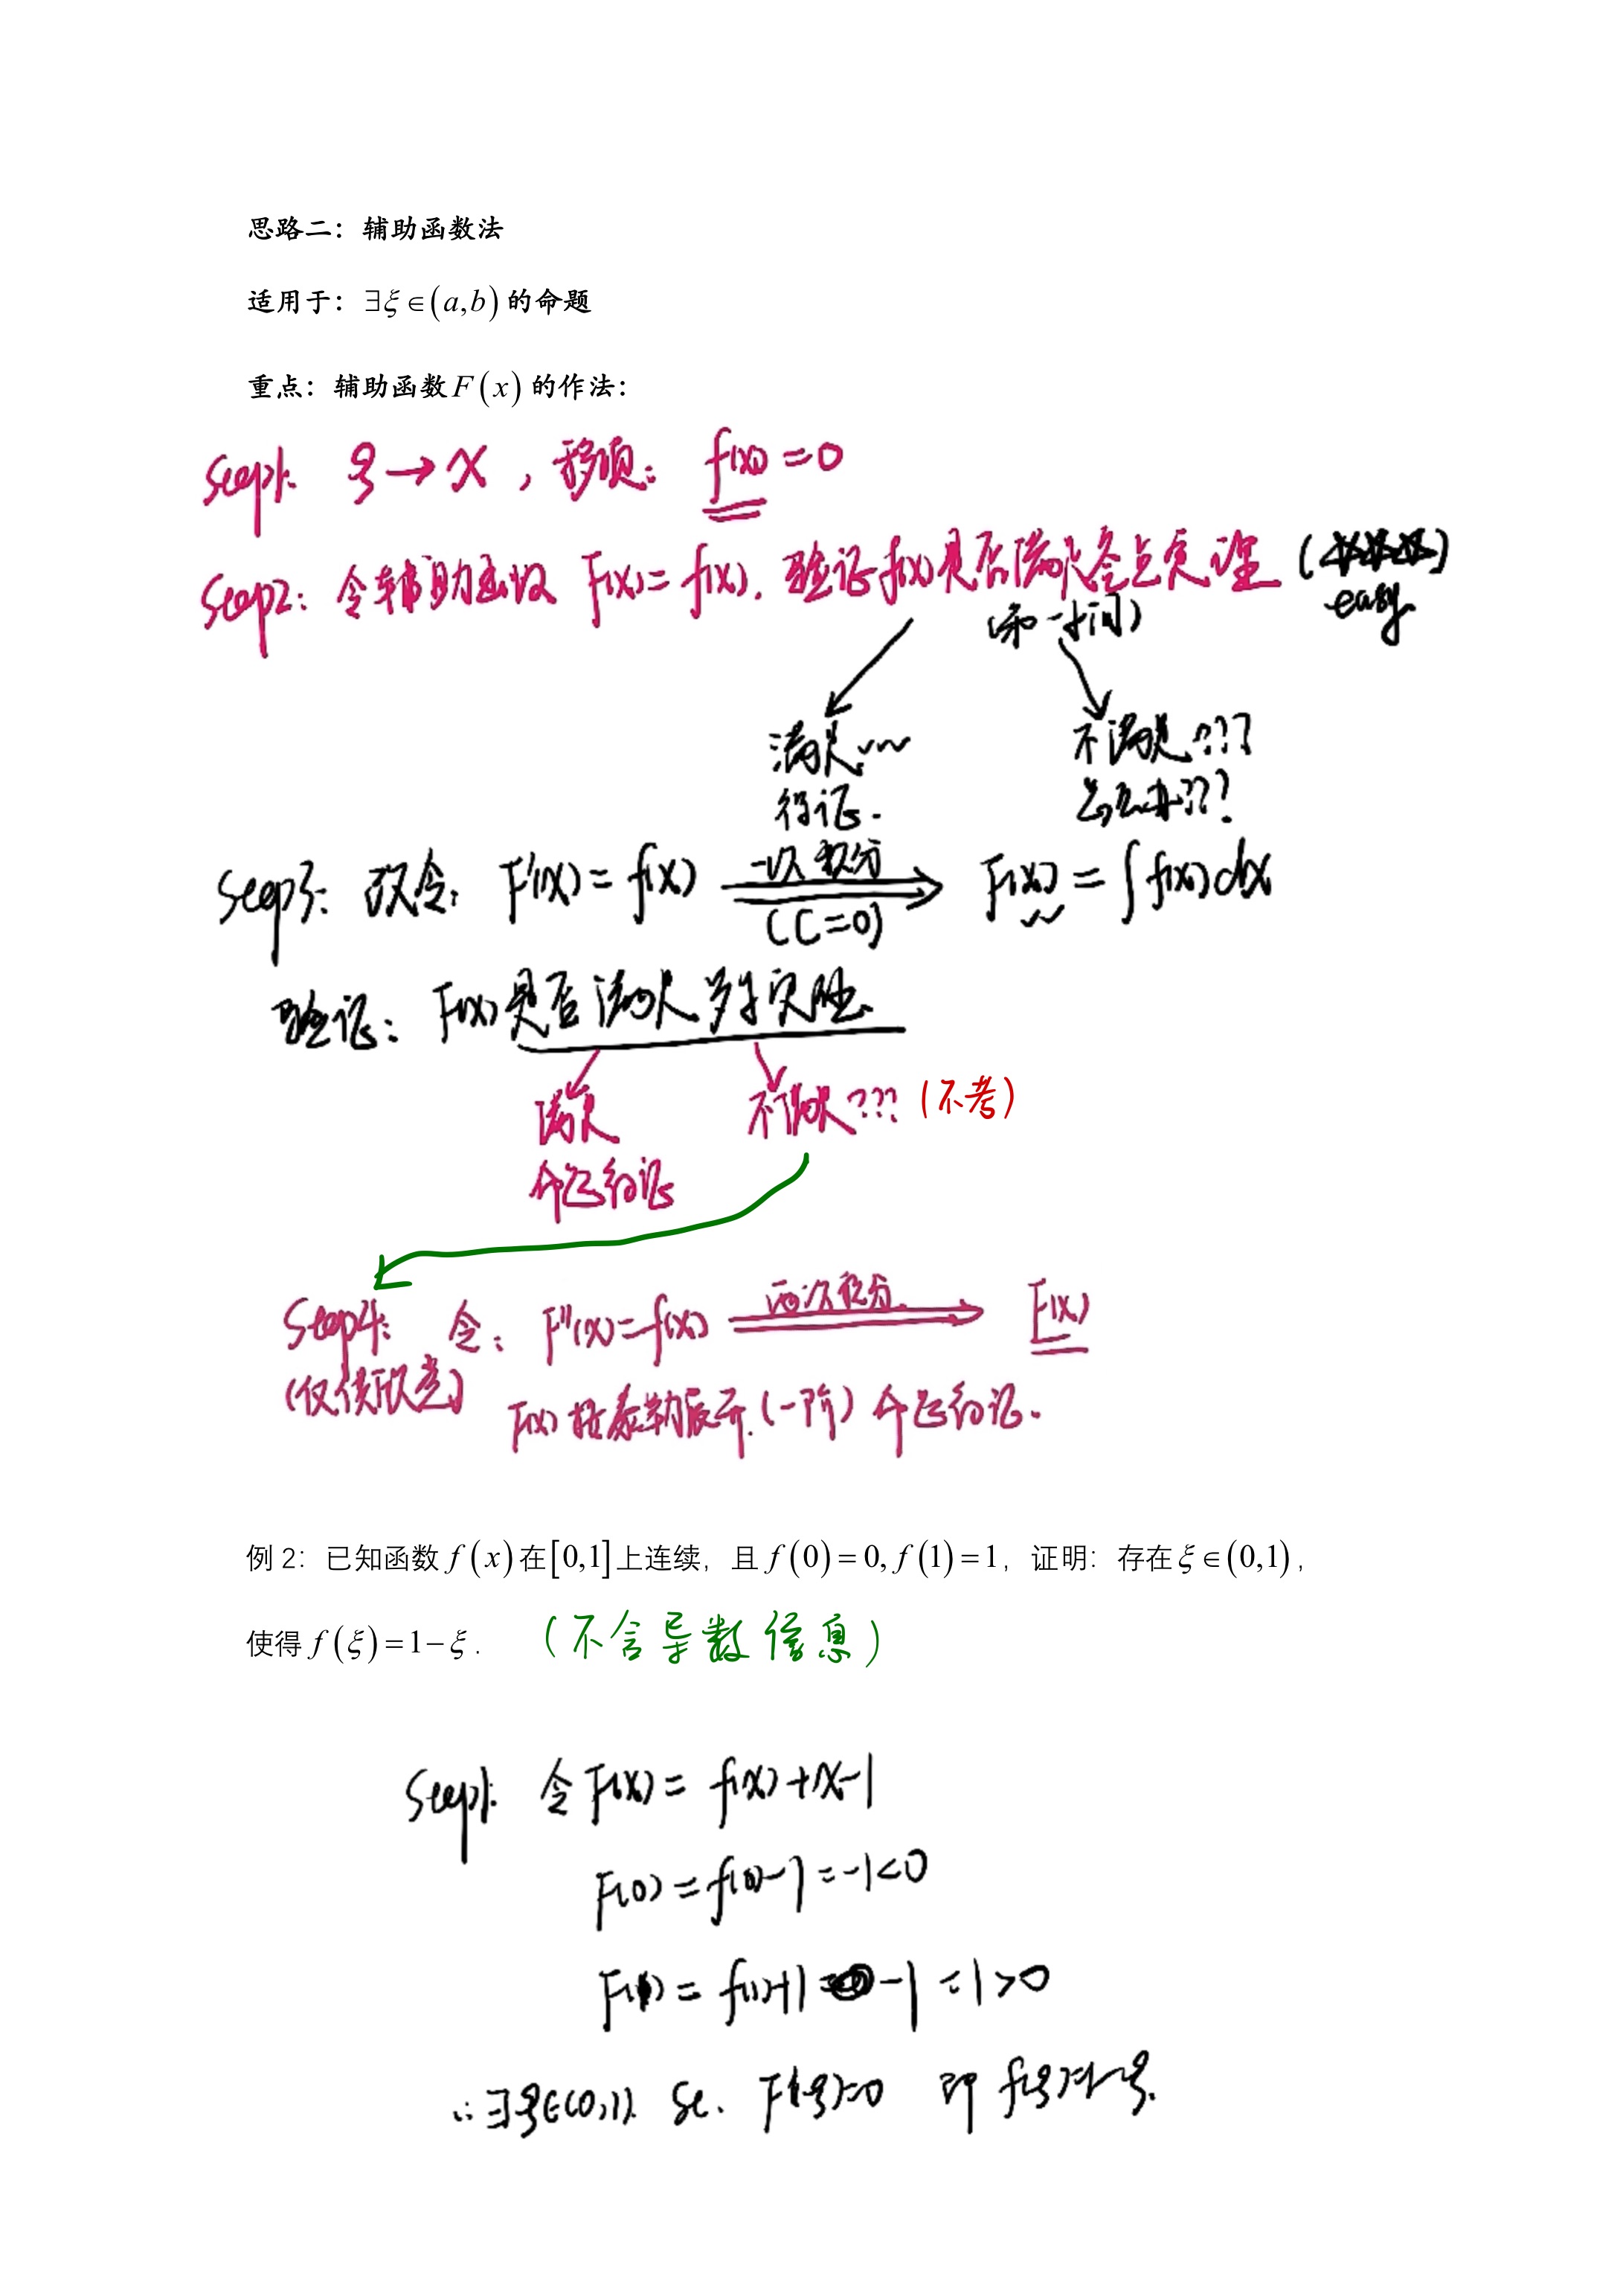 思路二：辅助函数法
适用于：∃ξ∈(a,b)的命题
重点：辅助函数F(x)的作法：
Step1: ξ→x，移项：f(x)=0
Step2: 令辅助函数 F(x)=f(x). 验证f(x)是否满足零点定理 (
easy.
满足
得证.
不满足???
怎么办???
Step3: 改令: F'(x)=f(x) 一次积分 (C=0) F(x)=∫f(x)dx
验证: F(x)是否满足罗尔定理.
满足 不满足??? (不考)
命题得证
Step4: 令: F''(x)=f(x) 两次积分 F(x)
(仅供欣赏)
F(x)按泰勒展开.(一阶) 命题得证.
例 2：已知函数f(x)在[0,1]上连续，且f(0)=0,f(1)=1，证明：存在ξ∈(0,1)，
使得f(ξ)=1−ξ. (不含导数信息)
Step1: 令F(x)=f(x)+x-1
F(0)=f(0)-1=-1<0
F(1)=f(1)+1-1=1>0
∴∃ξ∈(0,1). St. F(ξ)=0 即 f(ξ)=1-ξ.